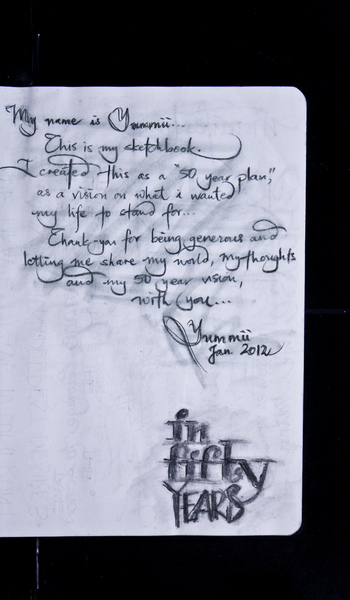 My name is Yummii...
This is my sketchbook.
I created this as a "50 year plan,"
as a vision on what i wanted
my life to stand for...
Thank-you for being generous and
letting me share my world, my thoughts
and my 50 year vision,
with you...
Yummii
Jan. 2012
in
fifty
YEARS